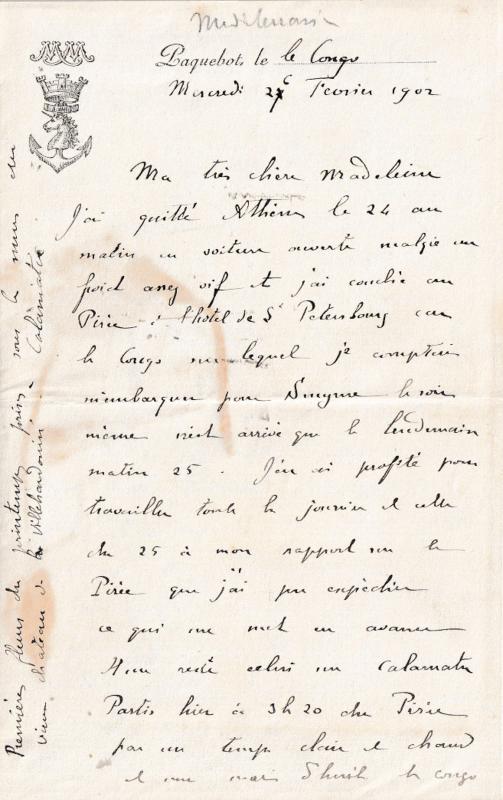 Mediterranée
MM
Paquebot, le le Congo
Mercredi 27 Fevrier 1902
Ma très chère Madeleine
J'ai quitté Athènes le 24 au
matin en voiture ouverte malgré un
froid assez vif et j'ai couché au
Pirée à l'hotel de St Petersbourg car
le Congo sur lequel je comptais
m'embarquer pour Smyrne le soir
même n'est arrivé que le lendemain
matin 25. J'en ai profité pour
travailler toute la journée et celle
du 25 à mon rapport sur le
Pirée que j'ai pu expédier
ce qui me met en avance
Il me reste celui sur Calamata
Partis hier à 3h20 du Pirée
par un temps clair et chaud
et une mer le Congo
Premières fleurs du printemps prises sous les murs du
vieux château de Villehardouin. Calamata